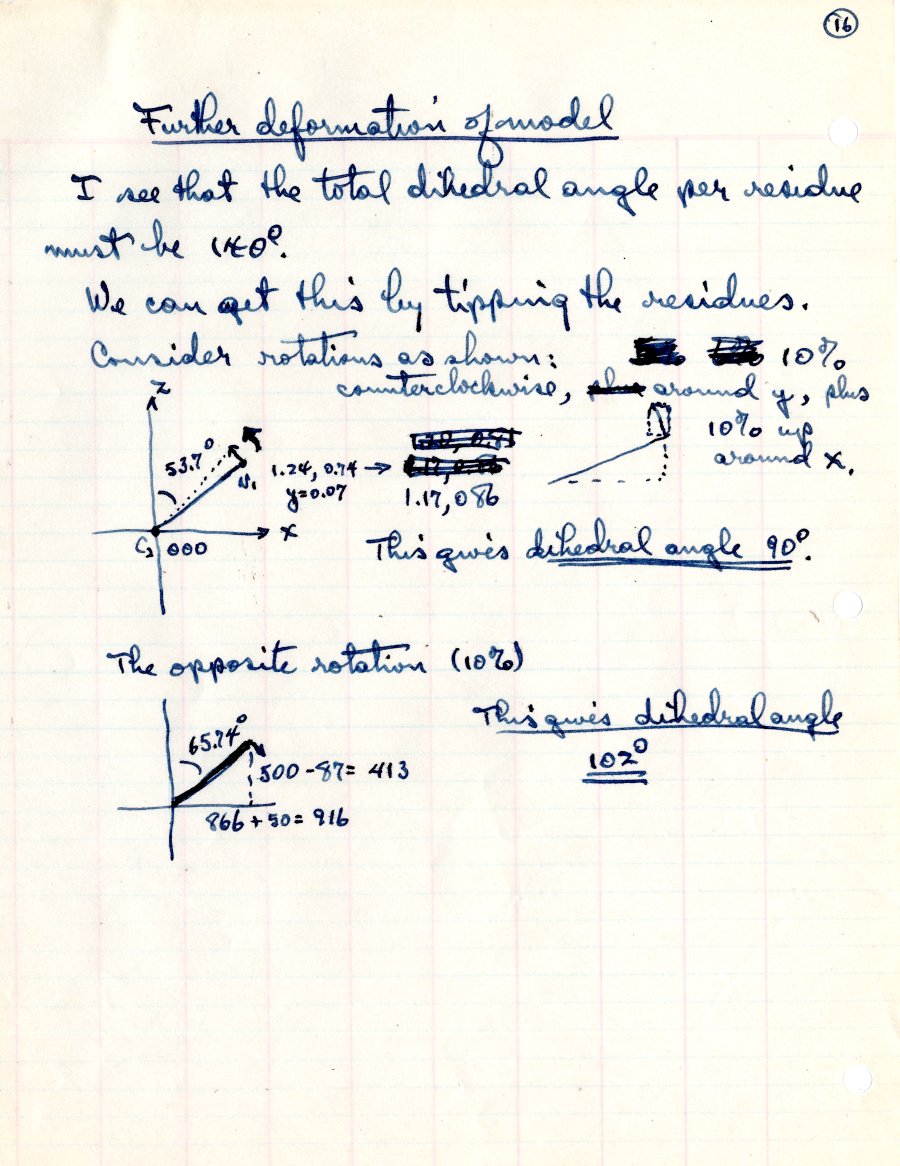 16
Further deformation of model
I see that the total dihedral angle per residue
must be 140°.
We can get this by tipping the residues.
Consider rotations as shown: 10%
counterclockwise, around y, plus
10% up
around x.
z
53.7°
N₁
1.24, 0.74 →
y=0.07
1.17, 086
x
C₂ 000
This gives dihedral angle 90°.
The opposite rotation (10%)
65.74°
500 - 87 = 413
866 + 50 = 916
This gives dihedral angle
102°